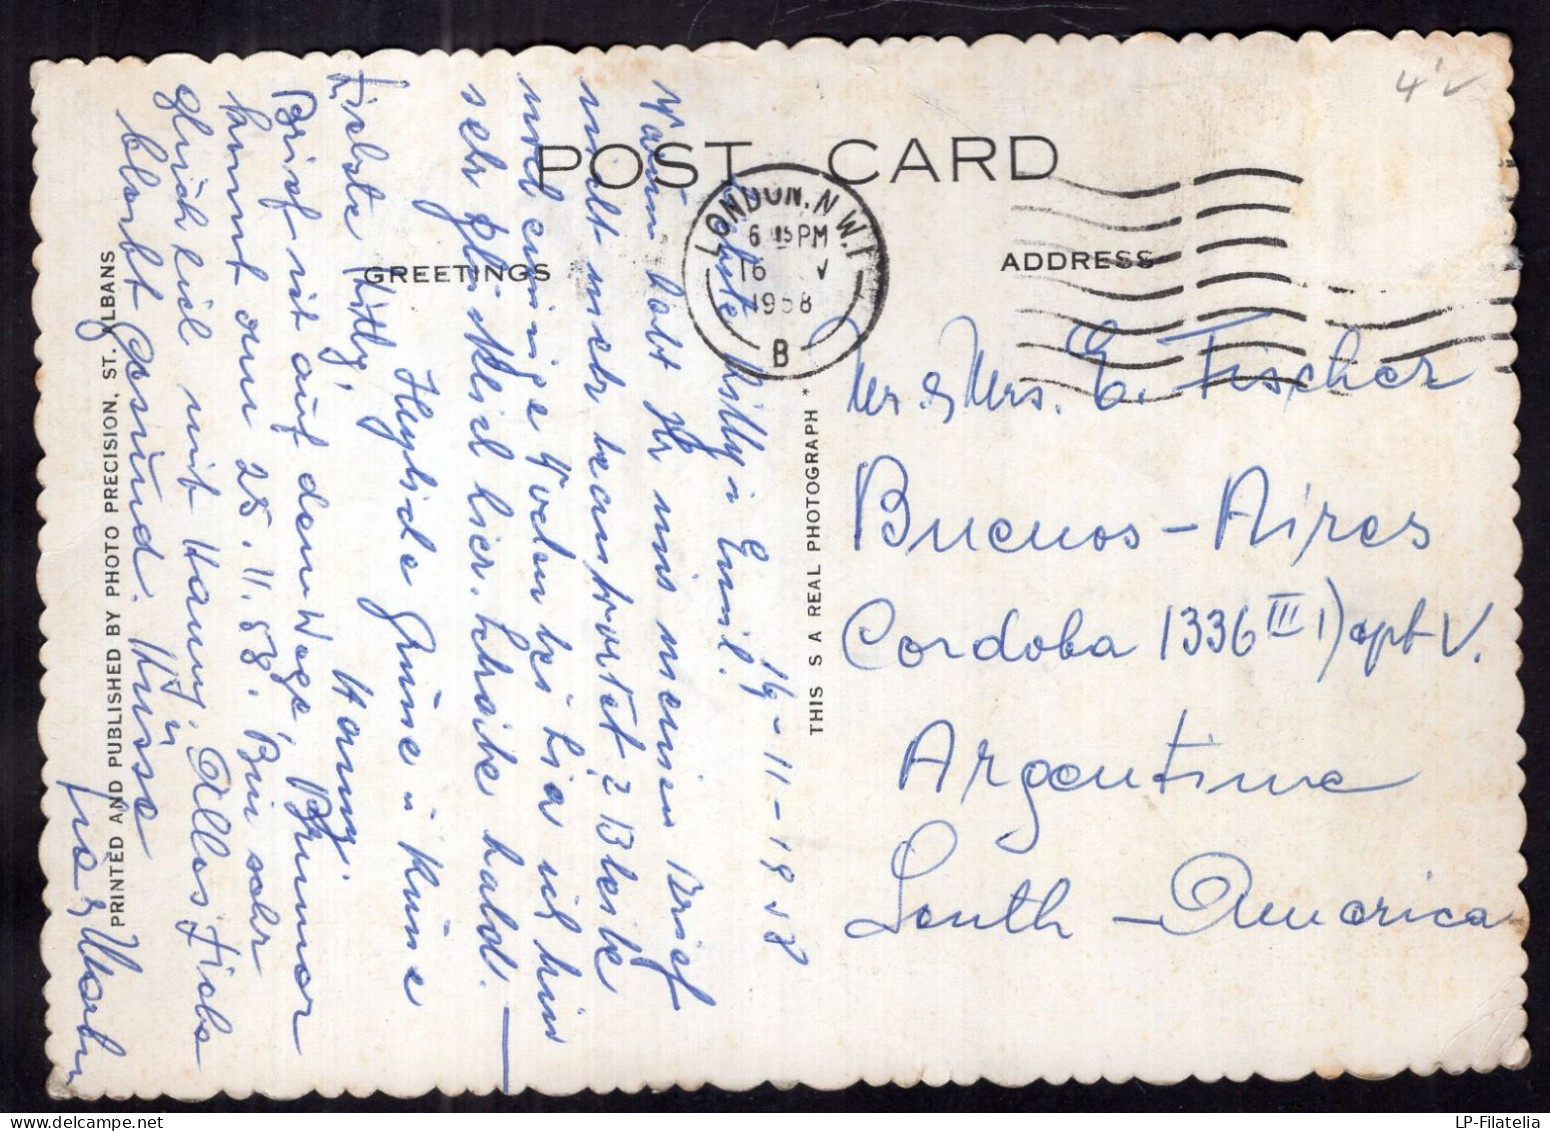 4
POST CARD
GREETINGS
ADDRESS
LONDON. N.W.1
6 15 PM
16 V
1958
B
Mr. & Mrs. E. Fischer
Buenos - Aires
Cordoba 1336 III 1) apt V.
Argentine
South - America
16-11-1958
Liebste Lilly u Emil!
Warum habt Ihr uns meinen Brief
nicht mehr beantwortet? Bleibe
noch einige Wochen bei Lia ich bin
sehr glücklich hier. Schreibe bald.
Herzliche Grüsse u Küsse
Hanny
Liebste Lilly!
Brief ist auf dem Wege,
kommt am 25.11.58. Bin sehr
glücklich mit Hanny. Alles Liebe
bleibt gesund. Küsse
THIS S A REAL PHOTOGRAPH
PRINTED AND PUBLISHED BY PHOTO PRECISION, ST. ALBANS
LP-Filatelia